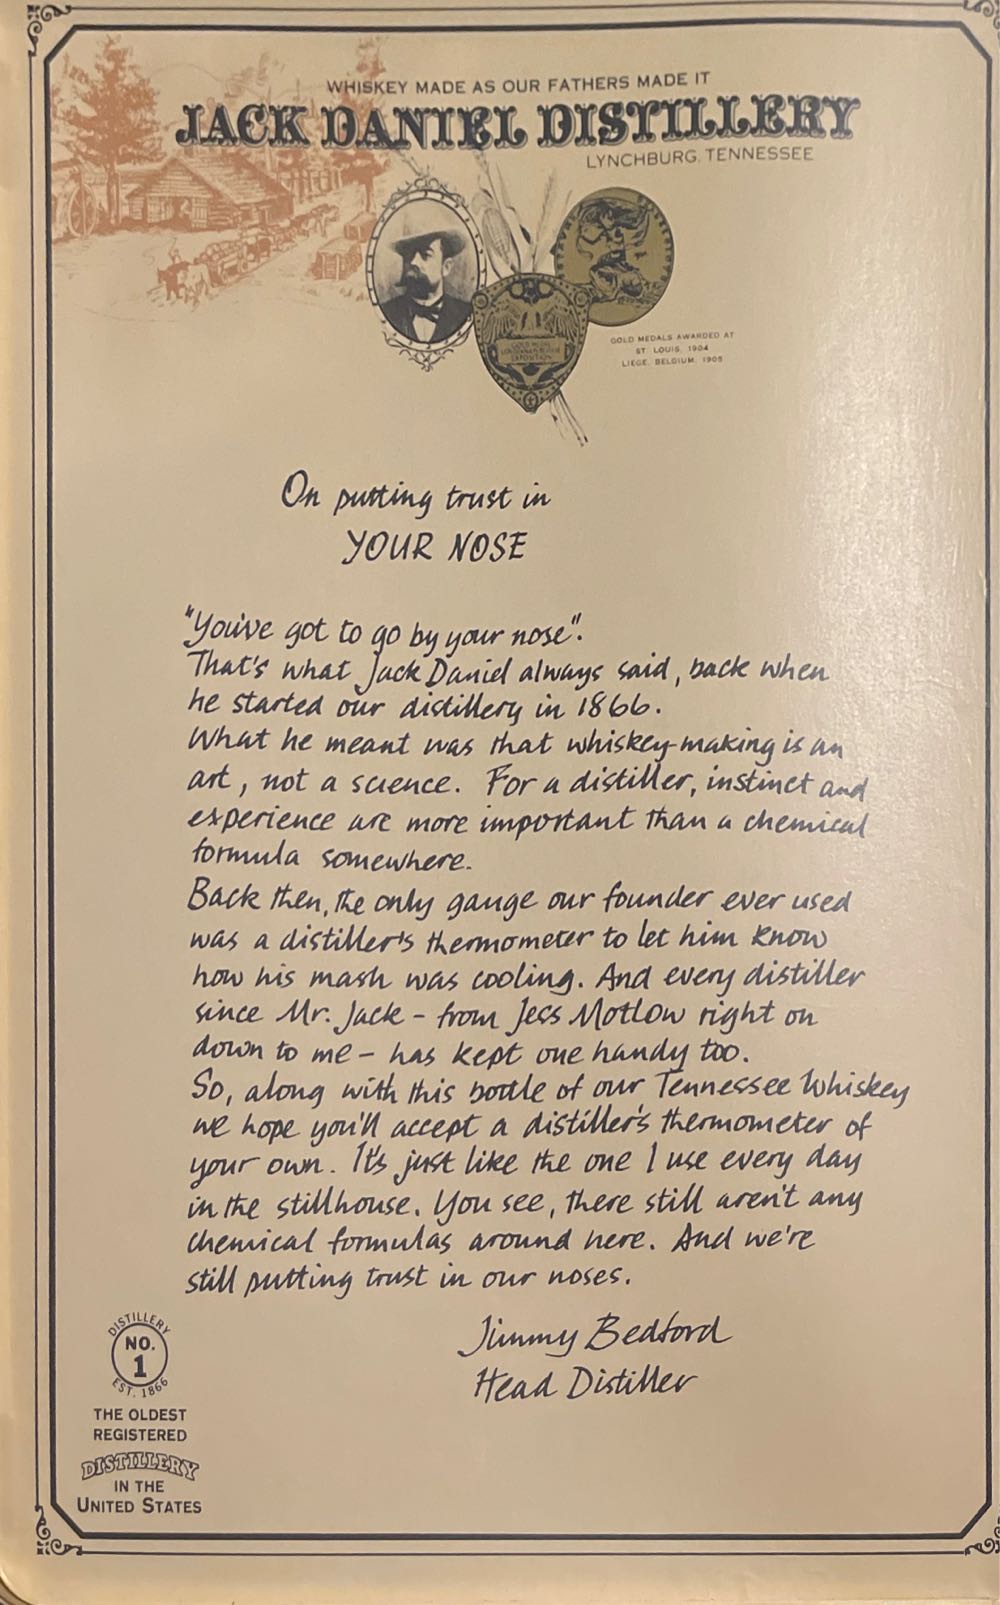 WHISKEY MADE AS OUR FATHERS MADE IT
JACK DANIEL DISTILLERY
LYNCHBURG, TENNESSEE
GOLD MEDAL
EXPOSITION
GOLD MEDALS AWARDED AT
ST. LOUIS, 1904
LIEGE, BELGIUM, 1905
On putting trust in
YOUR NOSE
"You've got to go by your nose".
That's what Jack Daniel always said, back when
he started our distillery in 1866.
What he meant was that whiskey-making is an
art, not a science. For a distiller, instinct and
experience are more important than a chemical
formula somewhere.
Back then, the only gauge our founder ever used
was a distiller's thermometer to let him know
how his mash was cooling. And every distiller
since Mr. Jack - from Jess Motlow right on
down to me - has kept one handy too.
So, along with this bottle of our Tennessee Whiskey
we hope you'll accept a distiller's thermometer of
your own. It's just like the one I use every day
in the stillhouse. You see, there still aren't any
chemical formulas around here. And we're
still putting trust in our noses.
Jimmy Bedford
Head Distiller
DISTILLERY
NO.
1
EST. 1866
THE OLDEST
REGISTERED
DISTILLERY
IN THE
UNITED STATES